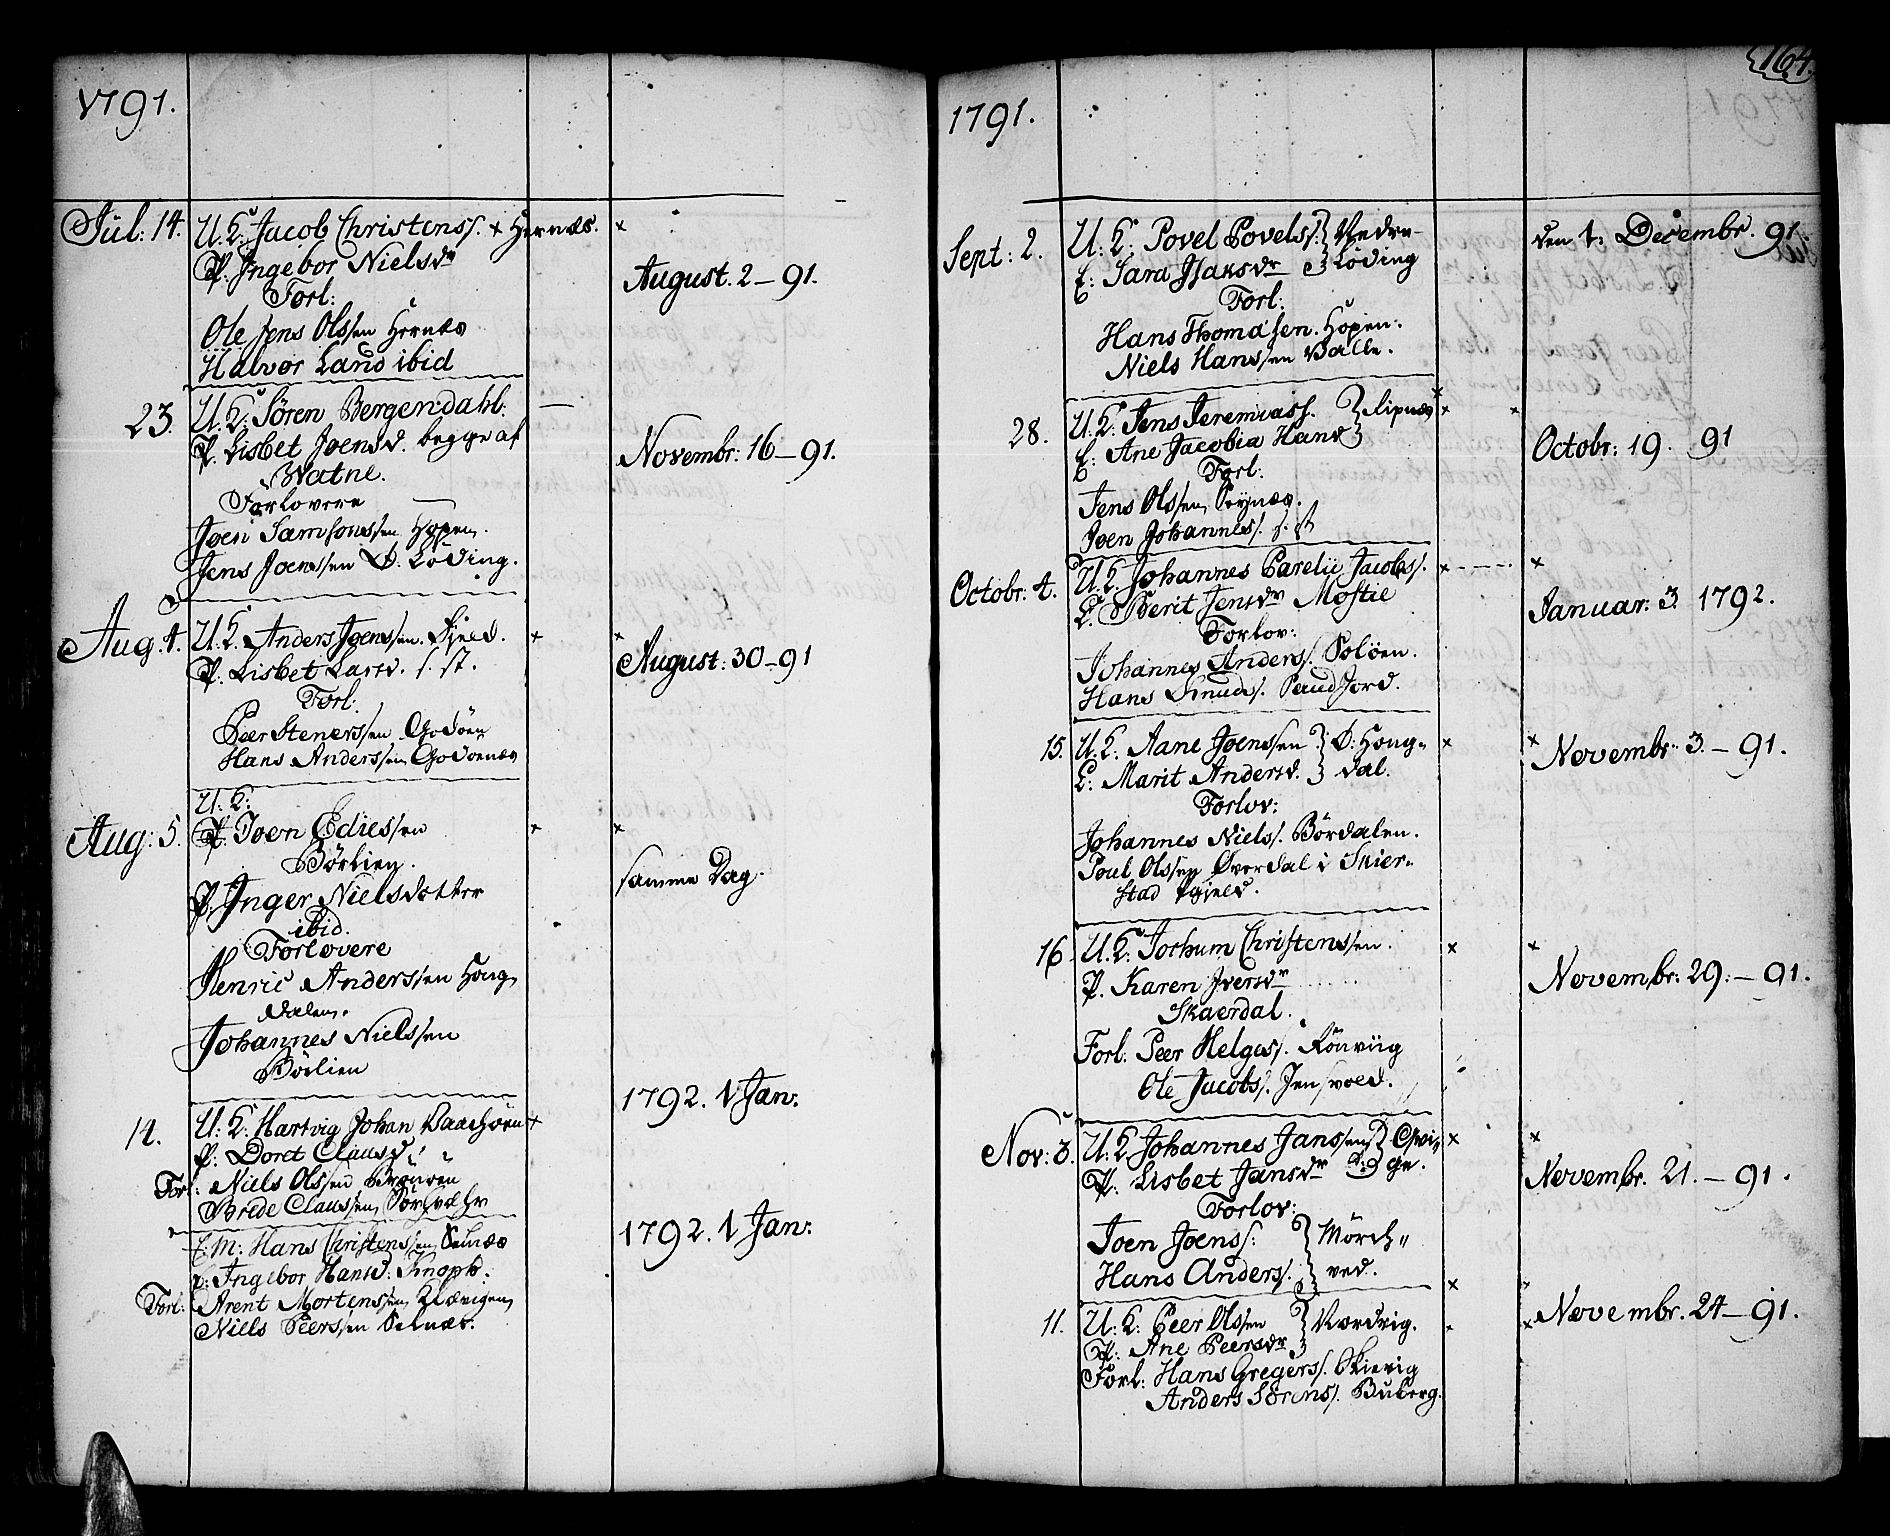 1791.
Jul: 14.
U. K: Jacob Christenss. × Hernæs.
P. Ingebor Nielsdr
Forl:
Ole Jens Olssen Hernæs
Halvor Lars ibid
August. 2 – 91.
23.
U. K: Sören Bergendahl.
P. Lisbet Joensd. begge af
Watne.
Forlovere
Joen Samsonssen Hopen.
Jens Joenssen L. Löding.
Novembr: 16 – 91.
Aug. 4.
U. K Anders Joenssen. Fjeld.
P. Lisbet Larsd. s. st.
Forl:
Peer Stenerssen Godöen
Hans Anderssen Godöenæs
August: 30 – 91
Aug: 5.
U. K:
P. Joen Ediessen
Börlien.
P. Inger Nielsdotter
ibid.
Forlovere
Henric Anderssen Hong
dalen.
Johannes Nielssen
Börlien
samme Dag.
14.
U. K: Hartvig Johan
P. Doret Clausd.
Forl: Niels Olssen
Brede Claussen
1792. 1 Jan:
E. M: Hans Christenssen Selnæs
Ingebor Hansd:
Forl: Arent Mortenssen
Niels Peerssen Selnæs.
1792. 1 Jan:
164.
1791.
Sept: 2.
U. K: Povel Povels. } Nedre
E: Sara Isaksdr } Löding
Forl:
Hans Thomasen. Hopen.
Niels Hanssen Valle.
den 1. Decembr. 91
28.
U. K: Jens Jeremiass. }
E: Ane Jacobia Hansd }
Forl:
Jens Olssen
Joen Johanness. s. st
Octobr: 19. 91
Octobr: 4.
U. K. Johannes Parelii Jacobs.
E. Berit Jensdr
Forlov:
Johannes Anders. Solöen.
Hans Knuds. Sandjord.
Januar: 3. 1792.
15.
U. K. Aane Joenssen } Ö: Hong-
E: Marit Andersd. } dal.
Forlov:
Johannes Niels. Bördalen.
Poul Olssen Överdal i Skier-
stad Gield.
Novembr: 3. – 91.
16.
U. K: Jochum Christenssen.
P. Karen Iversdr
Skaerdal.
Forl: Peer Helges. Rönviig
Ole Jacobs. Jensvold.
Novembr: 29. – 91.
Nov: 3.
U. K Johannes Janssen }
P: Lisbet Jansdr }
Forlov:
Joen Joens: } Mörch-
Hans Anders. } ved.
Novembr. 21. – 91.
11.
U. K: Peer Olssen } Nordvig.
P: Ane Peersdr }
Forl: Hans Gregers. Skievig
Anders Sörens. Buberg.
Novembr. 24 – 91.